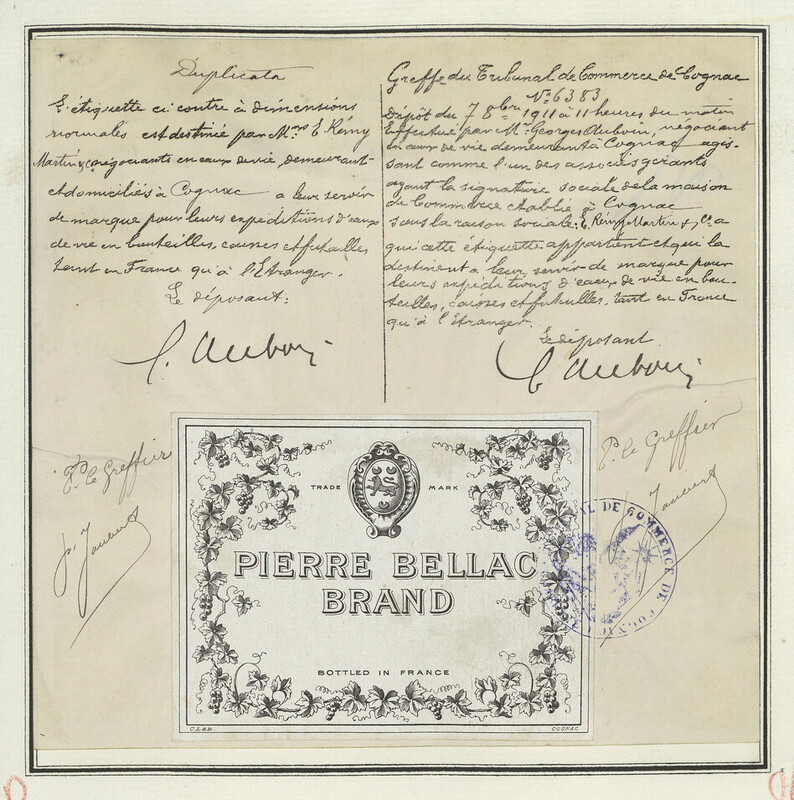 Duplicata
L'étiquette ci contre à dimensions
normales est destinée par Mrs E. Rémy
Martin & Co négociants en eaux de vie, demeurant
et domiciliés à Cognac a leur servir
de marque pour leurs expéditions d'eaux
de vie en bouteilles, caisses et futailles
tant en France qu'à l'Etranger.
Le déposant:
G. Auboin
P. le Greffier
Greffe du Tribunal de Commerce de Cognac
No 6383
Dépôt du 7 8bre 1911 à 11 heures du matin
Effectué par Mr Georges Auboin, négociant
en eaux de vie demeurant à Cognac agis-
sant comme l'un des associés gérants
ayant la signature sociale de la maison
de Commerce établie à Cognac
sous la raison sociale: E. Rémy Martin & Co a
qui cette étiquette appartient et qui la
destinent a leur servir de marque pour
leurs expéditions d'eaux de vie en bou-
teilles, caisses et futailles, tant en France
qu'à l'Etranger.
Le déposant
G. Auboin
P. le Greffier
TRADE MARK
PIERRE BELLAC
BRAND
BOTTLED IN FRANCE
COGNAC
DE COMMERCE DE COGNAC